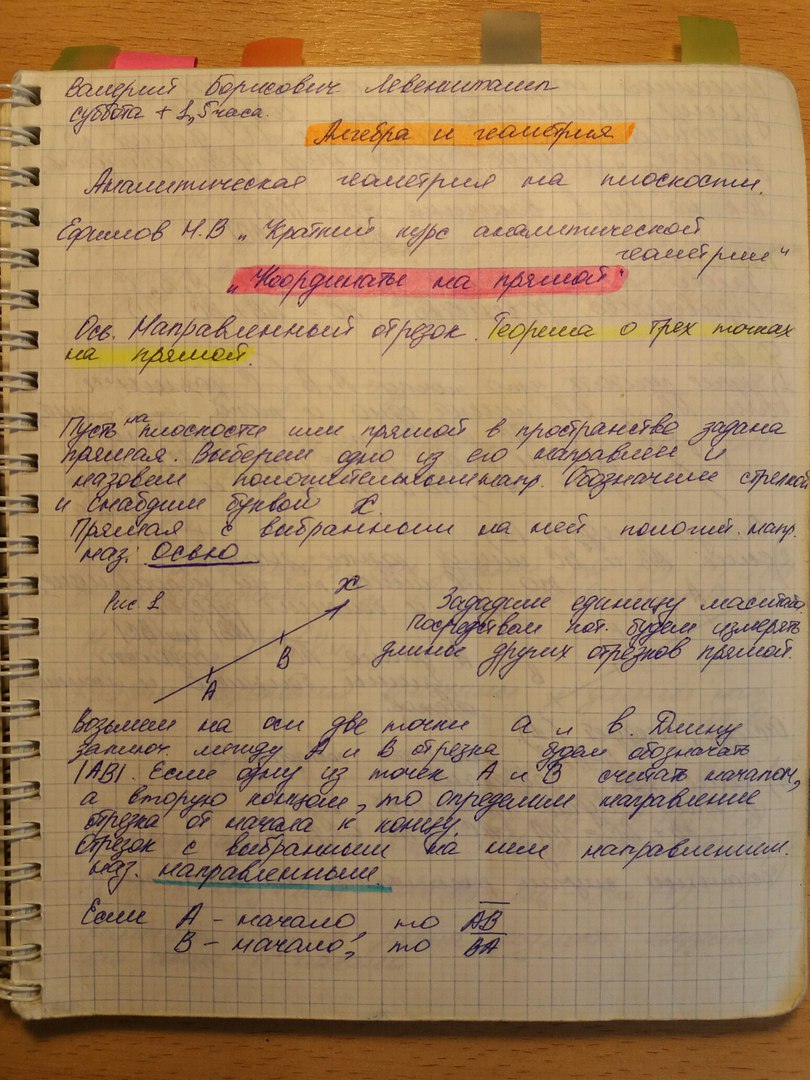 Валерий Борисович Левенштам
суббота + 1,5 часа.
Алгебра и геометрия
Аналитическая геометрия на плоскости.
Ефимов Н.В „Краткий курс аналитической
геометрии"
„Координаты на прямой"
Ось. Направленный отрезок. Теорема о трех точках
на прямой.
Пусть на плоскости или прямой в пространство задана
прямая. Выберем одно из его направлен и
назовем положительным напр. Обозначим стрелкой
и снабдим буквой X.
Прямая с выбранным на ней полож. напр.
наз: Осью
Рис 1
X
B
A
Зададим единицу масштаба.
посредством кот. будем измерять
длины других отрезков прямой.
Возьмем на оси две точки а и в. Длину
заключ. между А и В отрезка будем обозначать
|AB|. Если одну из точек А и В считать началом,
а вторую концом, то определим направление
отрезка от начала к концу.
Отрезок с выбранным на нем направлением.
наз. направленным.
Если А - начало, то AB
В - начало, то BA